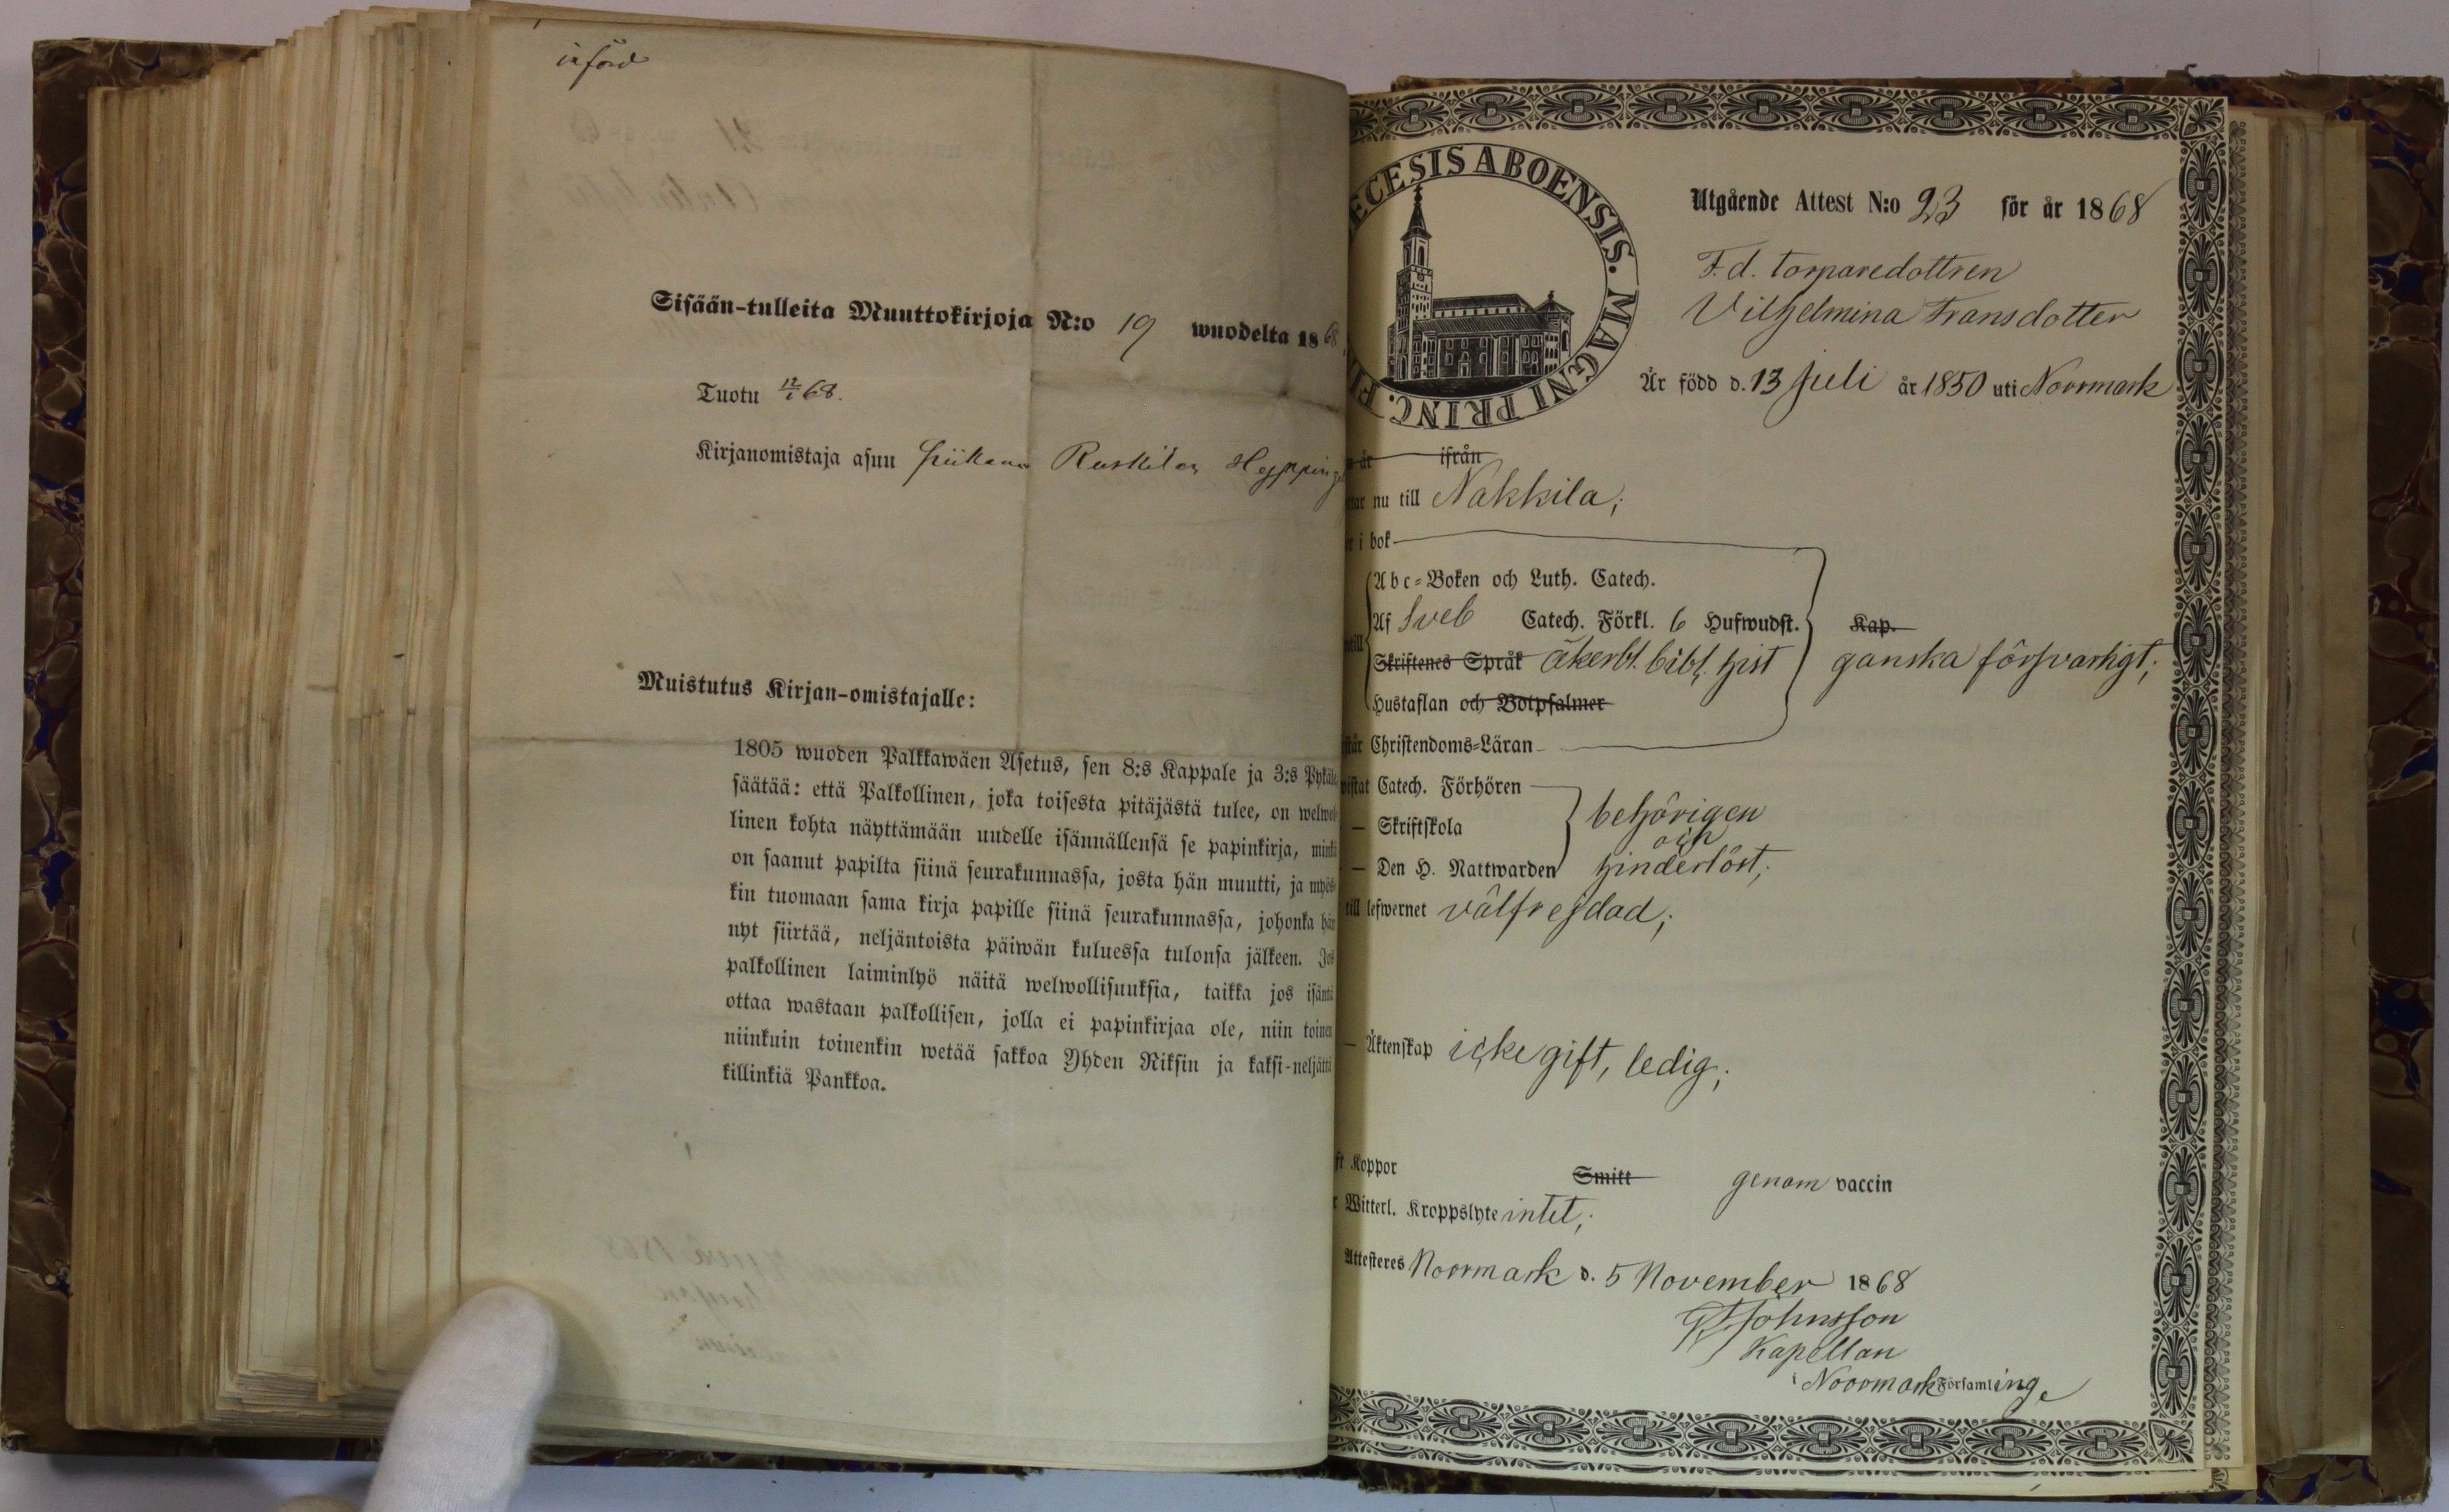 införd
Sisään-tulleita Muuttokirjoja N:o 19 wuodelta 1868.
Tuotu 12/1 68.
Kirjanomistaja asuu piikana Ruskilan
Muistutus Kirjan-omistajalle:
1805 wuoden Palkkawäen Asetus, sen 8:s Kappale ja 3:s Pykälä
säätää: että Palkollinen, joka toisesta pitäjästä tulee, on welwol-
linen kohta näyttämään uudelle isännällensä se papinkirja, minkä
on saanut papilta siinä seurakunnassa, josta hän muutti, ja myös-
kin tuomaan sama kirja papille siinä seurakunnassa, johonka hän
nyt siirtää, neljäntoista päiwän kuluessa tulonsa jälkeen. Jos
palkollinen laiminlyö näitä welwollisuuksia, taikka jos isäntä
ottaa wastaan palkollisen, jolla ei papinkirjaa ole, niin toinen
niinkuin toinenkin wetää sakkoa Yhden Riksin ja kaksi-neljättä
killinkiä Pankkoa.
ECESIS ABOENSIS. MAGNI PRINC. FI
Utgående Attest N:o 23 för år 1868
F.d. torparedottren
Vilhelmina Fransdotter
Är född d. 13 Juli år 1850 uti Norrmark
år ifrån
nu till Nakkila;
i bok
Abc-Boken och Luth. Catech.
Af Sveb Catech. Förkl. 6 Hufwudst. Kap.
Skriftenes Språk åkerbl. bibl. hist ganska försvarligt;
Hustaflan och Botpsalmer
Christendoms-Läran
Catech. Förhören
— Skriftskola behörigen
och
— Den H. Nattwarden hinderlöst;
till lefwernet välfrejdad;
— Äktenskap icke gift, ledig;
Koppor Smitt genom vaccin
Witterl. Kroppslyte intet;
Attesteres Norrmark d. 5 November 1868
Johnsson
Kapellan
i Norrmark Församling